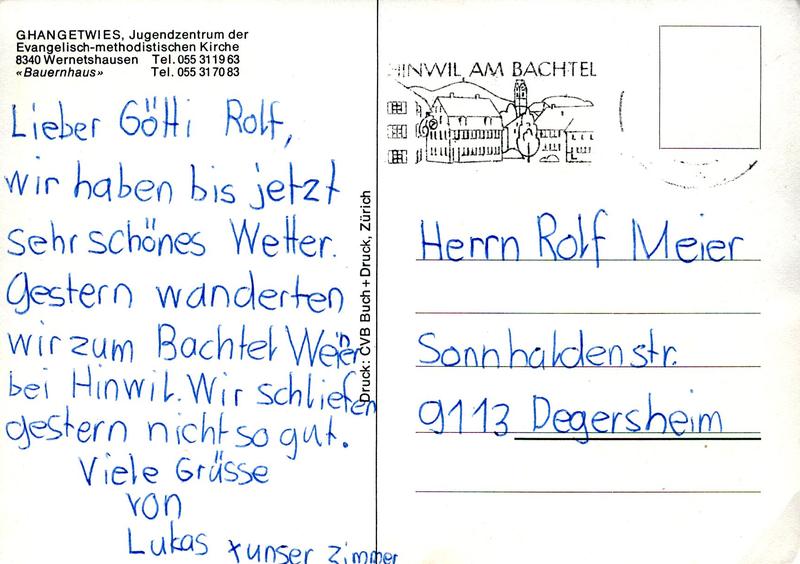 GHANGETWIES, Jugendzentrum der
Evangelisch-methodistischen Kirche
8340 Wernetshausen Tel. 055 31 19 63
«Bauernhaus» Tel. 055 31 70 83
Lieber Götti Rolf,
wir haben bis jetzt
sehr schönes Wetter.
Gestern wanderten
wir zum Bachtel
bei Hinwil. Wir schliefen
gestern nicht so gut.
Viele Grüsse
von
Lukas
xunser Zimmer
Druck: CVB Buch + Druck, Zürich
HINWIL AM BACHTEL
Herrn Rolf Meier
Sonnhaldenstr.
9113 Degersheim